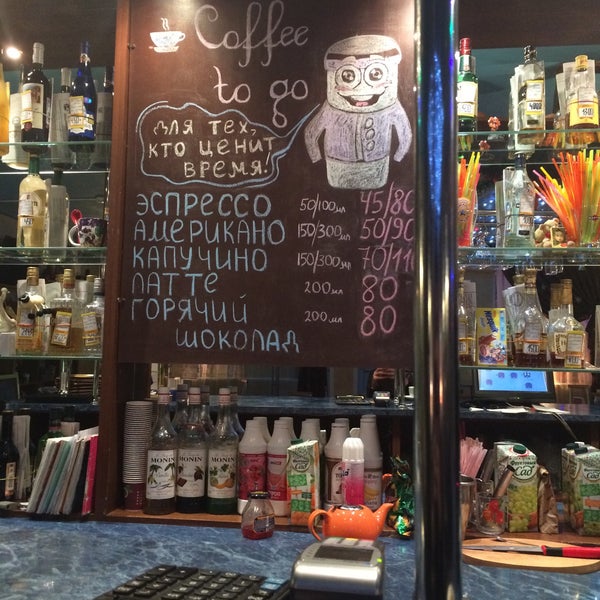 Coffee
to go
для тех,
кто ценит
время!
ЭСПРЕССО 50/100мл 45/80
АМЕРИКАНО 150/300мл 50/90
КАПУЧИНО 150/300мл 70/110
ЛАТТЕ 200мл 80
ГОРЯЧИЙ
ШОКОЛАД 200мл 80
MONIN
MONIN
MONIN
Сад
Сад